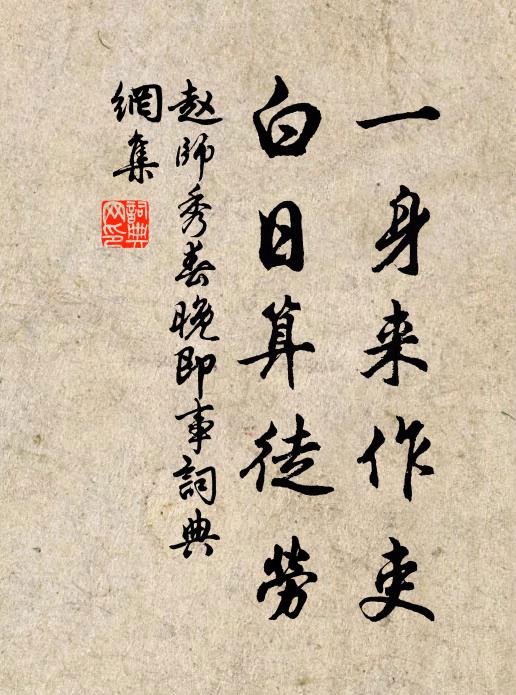 一身来作吏
白日算徒勞
赵師秀春晚即事詞典
網集
詞典
网印